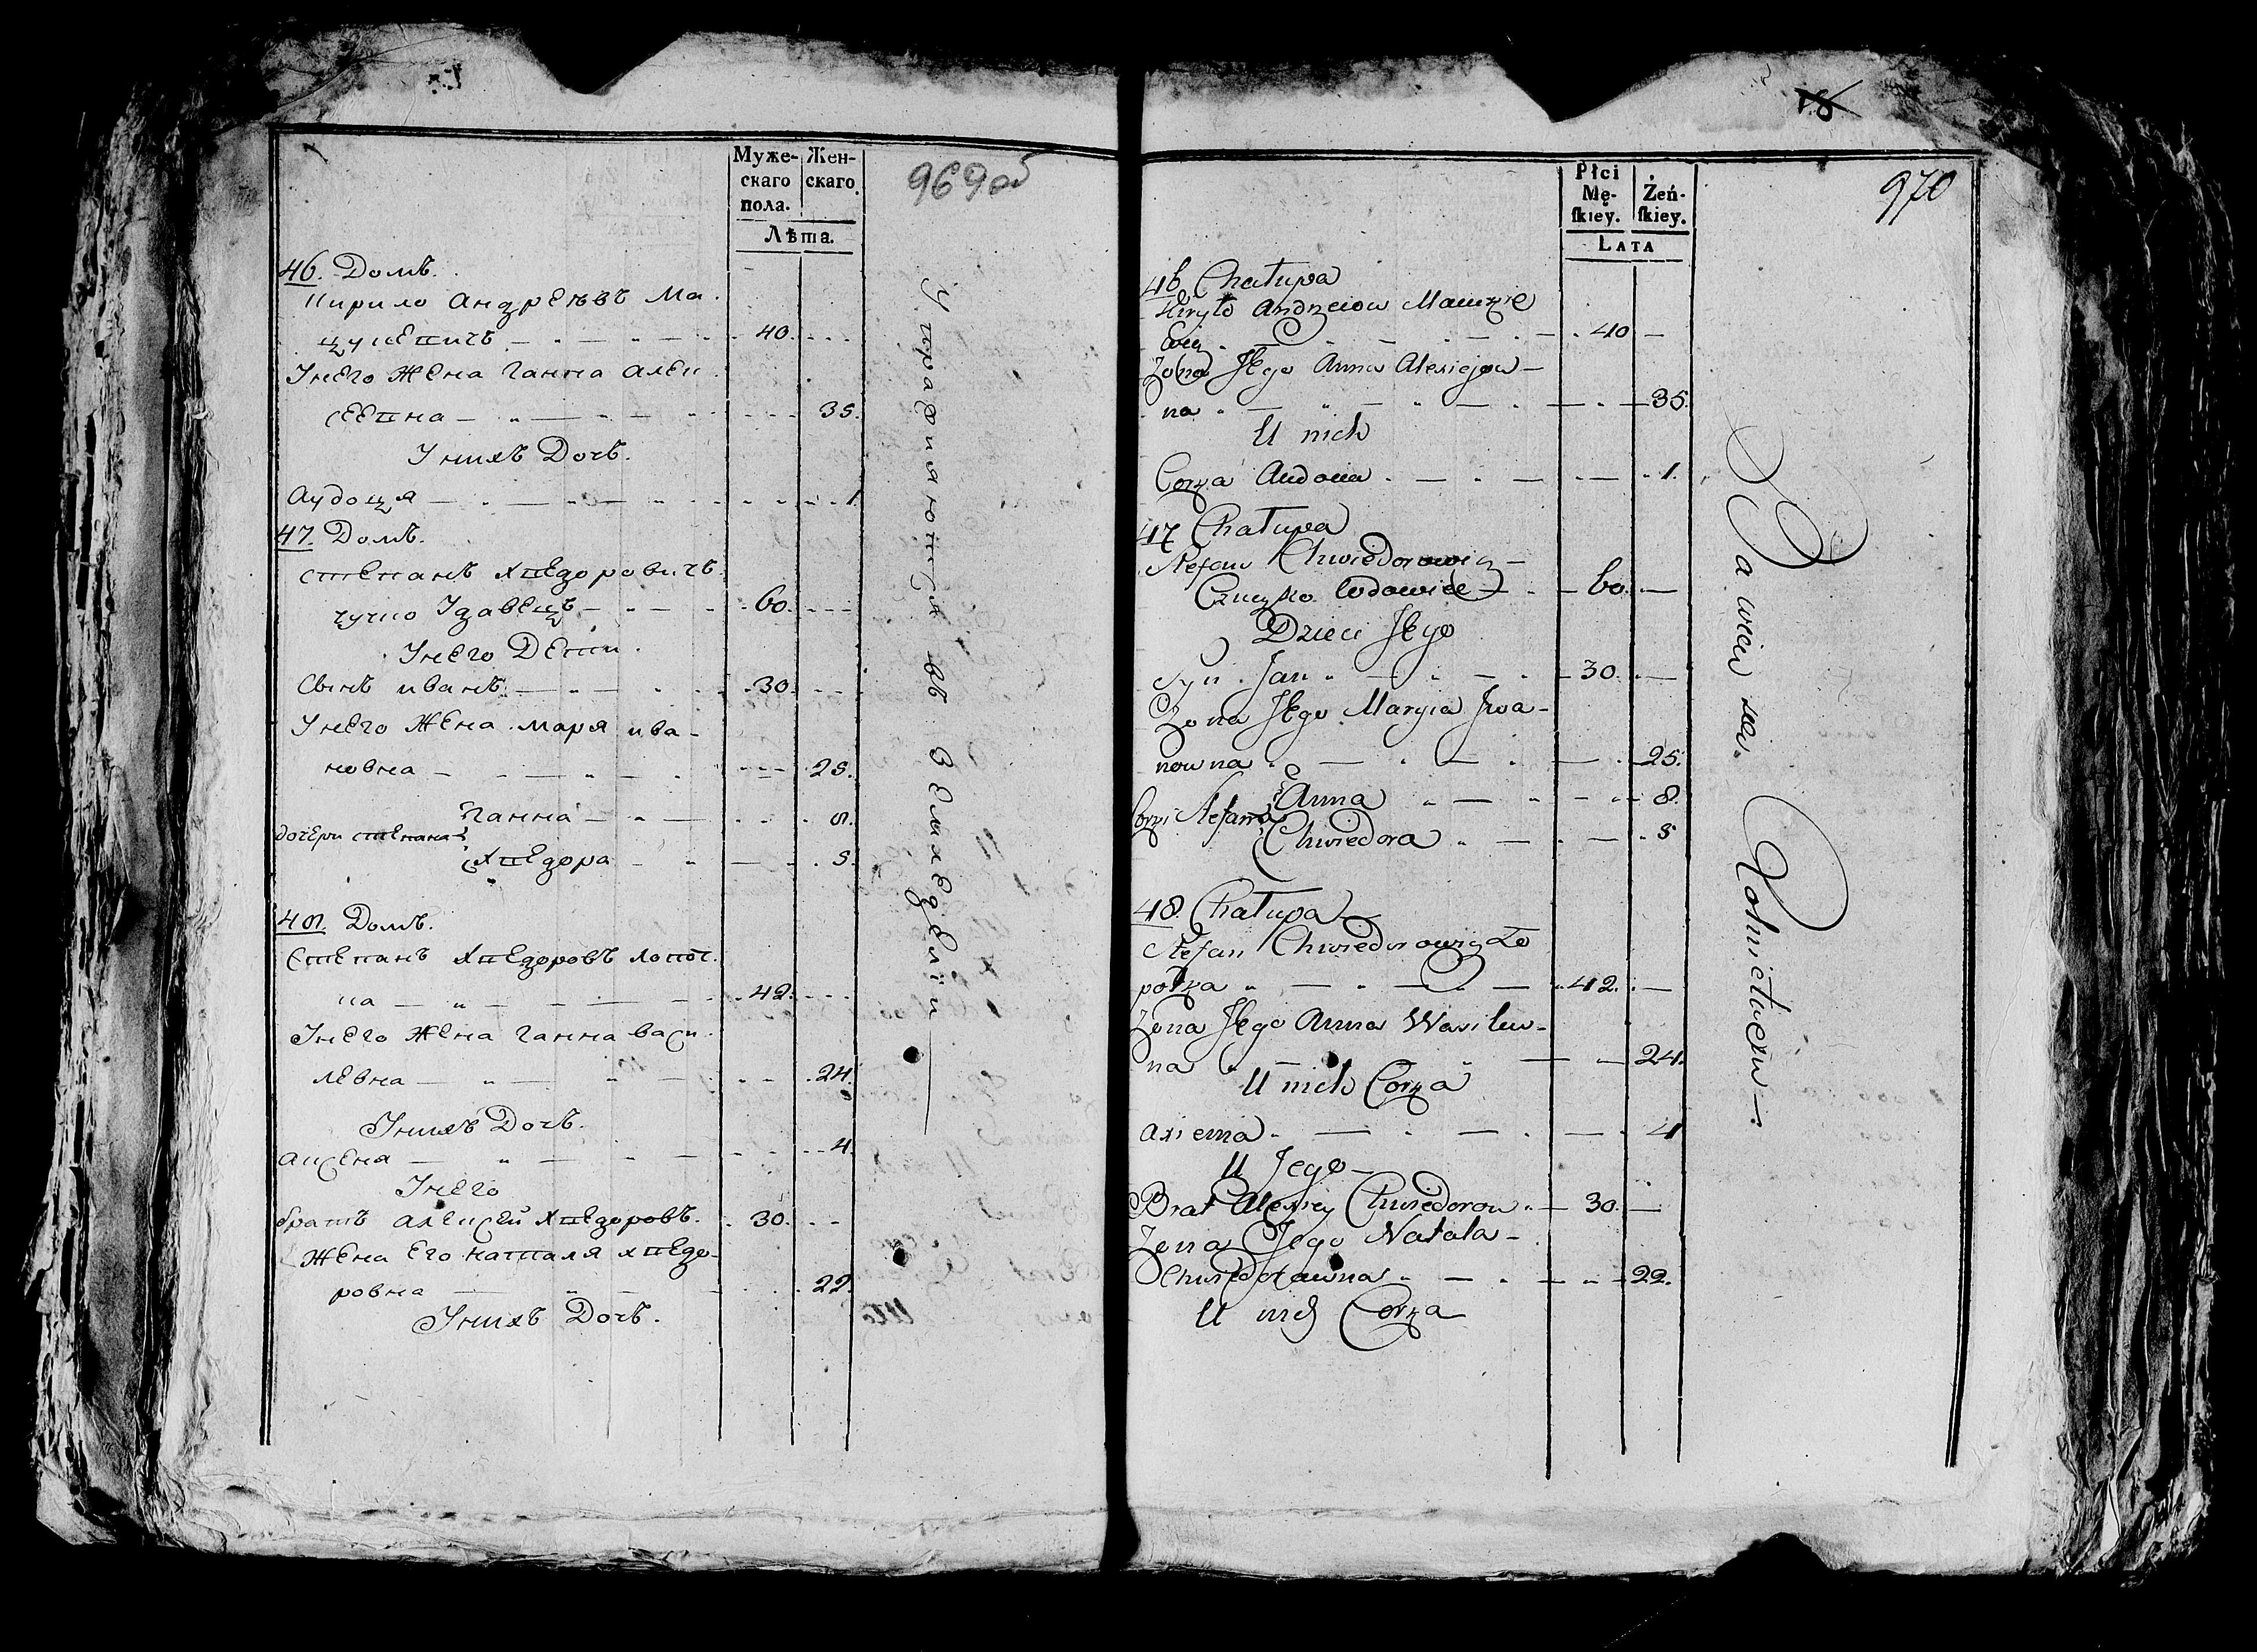 Муже-
скаго
пола.
Жен-
скаго.
Лѣта.
969 об
46. Домъ.
Кирило Андреѣвъ Ма
цукевичъ 40.
Унего Жена Ганна Алек
сеевна 35.
Унихъ Дочъ.
Аудоця 1
47. Домъ.
Степанъ Хведоровичъ
чучко Удавецъ 60.
Унего Дети.
Сынъ иванъ 30.
Унего Жена маря ива-
новна 25.
дочери степана
Ганна 8.
Хведора 5.
48. Домъ.
Степанъ Хведоровъ лопот.
ка 42.
Унего Жена Ганна васи
левна 24.
Унихъ Дочъ.
аксена 4.
Унего
братъ алексей Хведоровъ. 30.
Жена Его наталя хведо-
ровна 22.
Унихъ Дочъ.
Упражняются въ Земледелии
18
Płci
Mę-
skiey.
Żeń-
skiey.
LATA
970
46 Chałupa
Kiryło Andrzeiow Macukie
wicz 40
Zona Jego Anna Alexiejow-
na 35.
U nich
Corka Audocia 1.
47 Chałupa
Stefan Chwiedorowicz
Czuczko Wdowiec 60.
Dzieci Jego
Syn Jan 30.
Zona Jego Maryia Iwa-
nowna 25.
Corki Stefana
Anna 8.
Chwiedora 5
48. Chałupa
Stefan Chwiedorowicz Ło
potka 42.
Zona Jego Anna Wasilew-
na 24.
U nich Corka
Axiema 4
U Jego
Brat Alexiey Chwiedorow 30.
Zona Jego Natala
Chwiedorowna 22.
U nich Corka
Rolnictwem